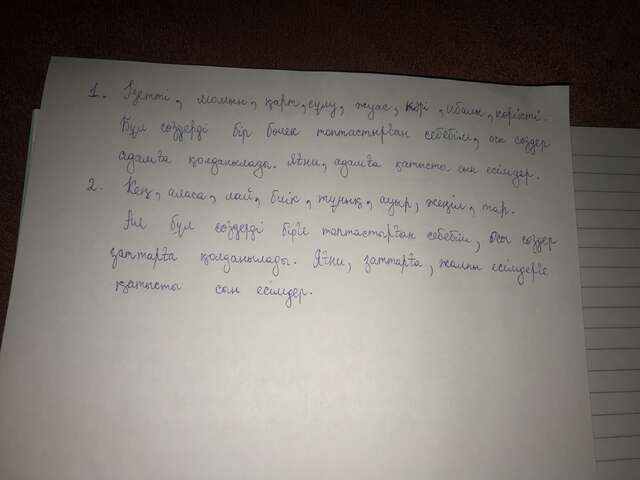 1. Ізетті, момын, қарт, сұлу, жуас, кәрі, ибалы, көрікті.
Бұл сөздерді бір бөлек топтастырған себебім, осы сөздер
адамға қолданылады. Яғни, адамға қатысты сын есімдер.
2. Кең, аласа, лай, биік, тұнық, ауыр, жеңіл, тар.
Ал бұл сөздерді бірге топтастырған себебім, осы сөздер
заттарға қолданылады. Яғни, заттарға, жалпы есімдерге
қатысты сын есімдер.